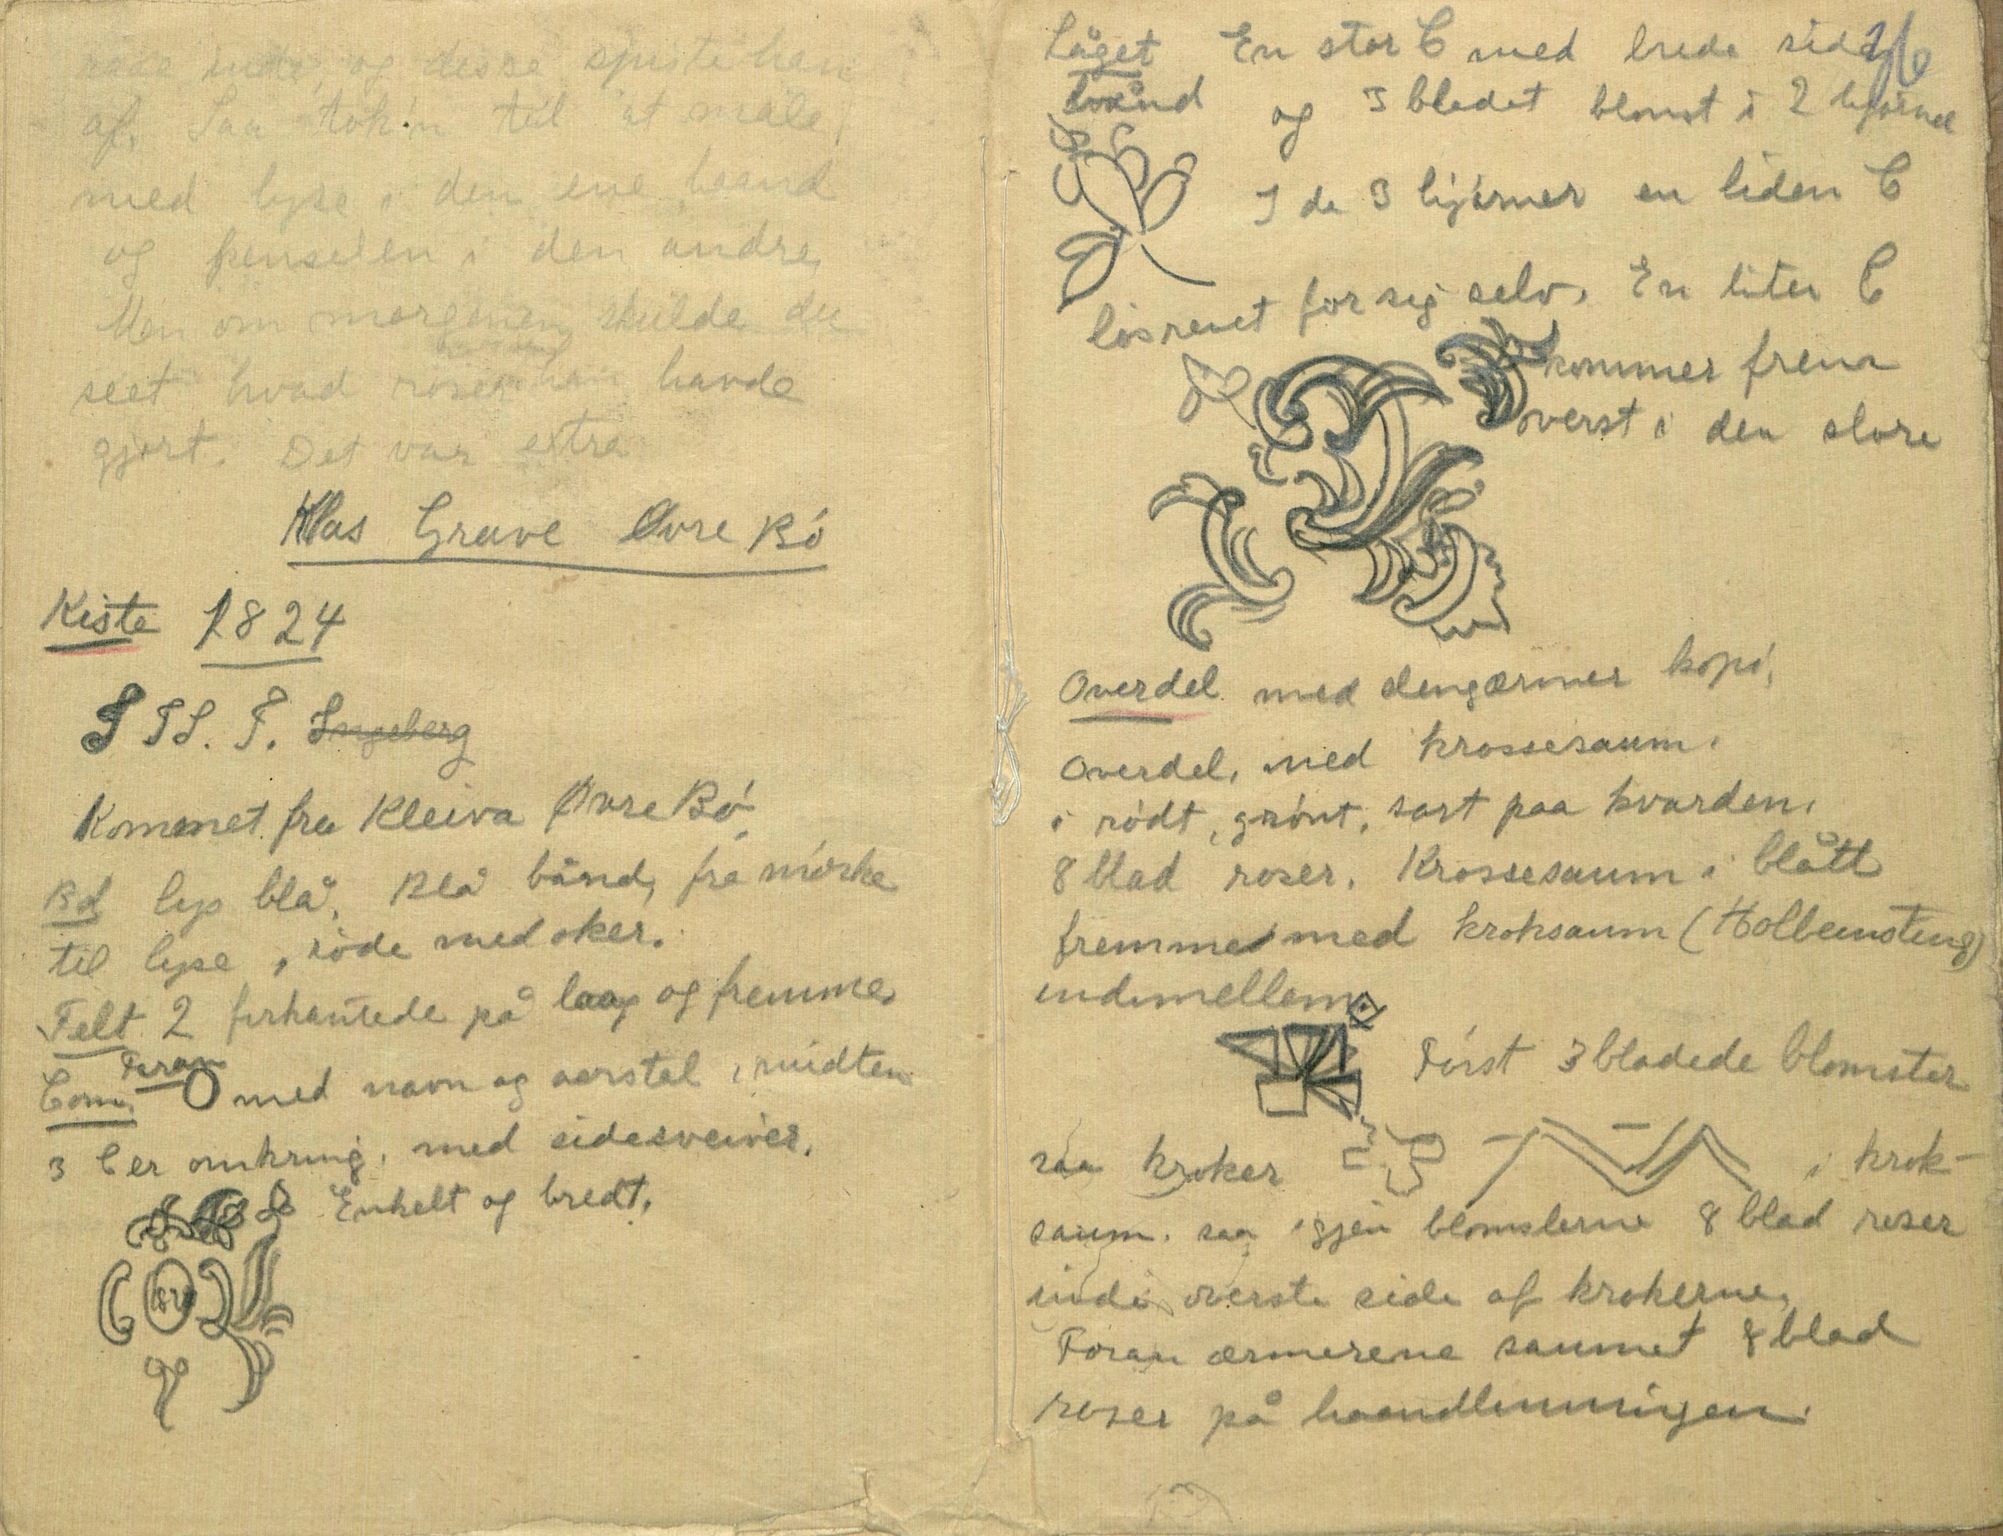 inde, og desse spuste han
af. Saa tok'n til at male,
med lyse i den ene haand
og penselen i den andre,
Men om morgenen skulde du
seet hvad roser han havde
gjort. Det var extra
Klas Grave Øvre Bø
Kiste 1824
S T S. F. Ingeberg
Kommet fra Kleiva Øvre Bø,
Bd lys blå. Blå bånd, fra mørke
til lyse, røde med oker.
Felt 2 firkantede på laag og fremme,
Foran
Com. O med navn og aarstal i midten
3 C er omkring, med sidesveiver.
Enkelt og bredt.
26
Låget En stor C med brede side
bånd og 3 bladet blomst i 2 hjørner
I de 3 hjørner en liden C
løsrevet for seg selv. En liten C
kommer frem
øverst i den store
Overdel med slengærmer kopi,
Overdel, med krossesaum.
i rødt, grønt, sort paa kvarden.
8 blad roser. Krossesaum i blått
fremme med kroksaum (Holbeinsting)
indimellem.
Først 3 bladede blomster
saa kroker i krok-
saum. saa igjen blomsterne 8 blad roser
inde øverste side af krokerne,
Foran ærmerene saumet 8 blad
roser på haandlinningen.